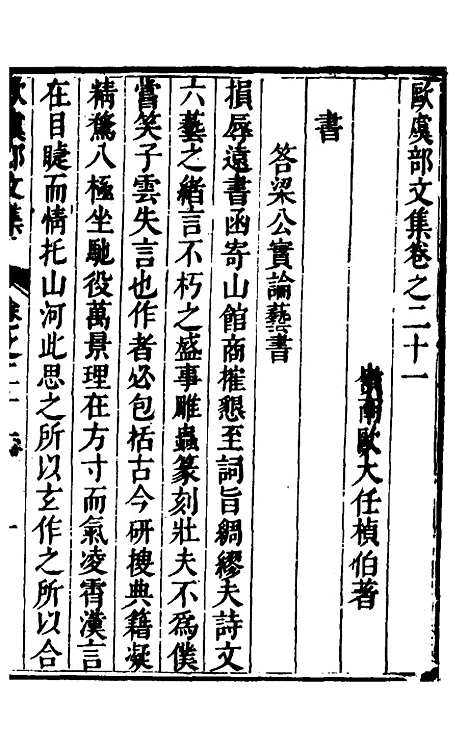 歐虞部文集卷之二十一
嶺南歐大任楨伯著
書
答梁公實論藝書
損辱遠書函寄山館商摧懇至詞旨綢繆夫詩文
六藝之緒言不朽之盛事雕蟲篆刻壯夫不爲僕
嘗笑子雲失言也作者必包栝古今研搜典籍凝
精騖八極坐馳役萬景理在方寸而氣凌霄漢言
在目睫而情托山河此思之所以玄作之所以合
歐虞部文集 卷之二十一 一